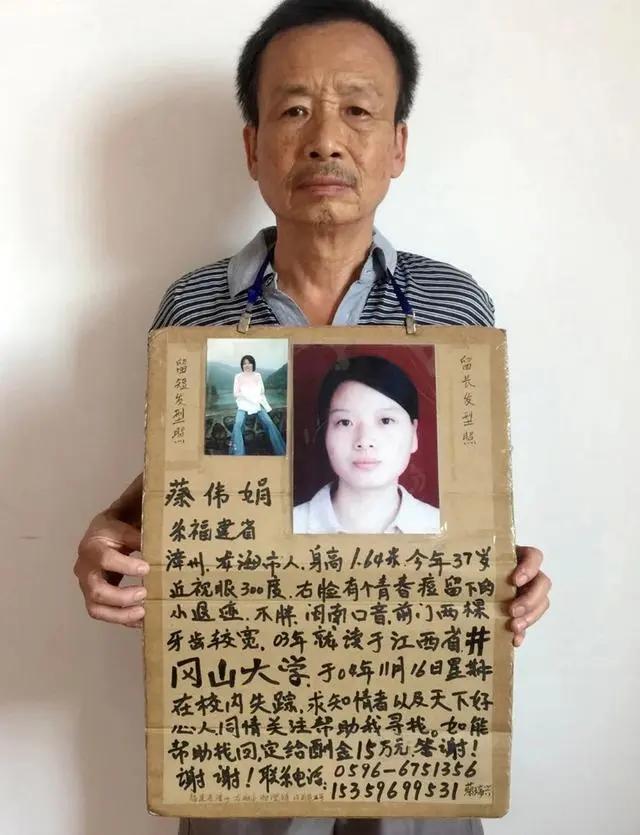 留短发型照
留长发型照
蔡伟娟
系福建省
漳州.龙海市人.身高1.64米.今年37岁
近视眼300度.右脸有个青春痘留下的
小退迹.不胖.闽南口音.前门两棵
牙齿较宽.03年就读于江西省井
冈山大学.于04年11月16日星期二
在校内失踪.求知情者以及天下好
心人同情关注帮助我寻找。如能
帮助找回,定给酬金15万元答谢!
谢谢!联系电话:0596-6751356
15359699531